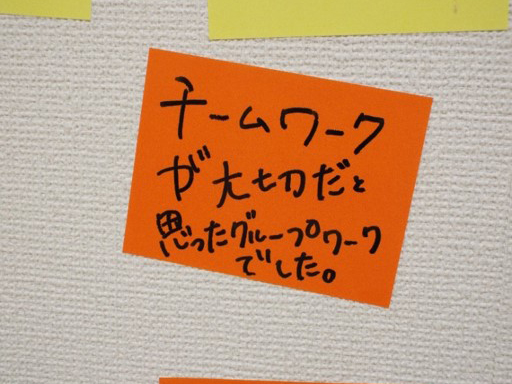 チームワーク
が大切だと
思ったグループワーク
でした。